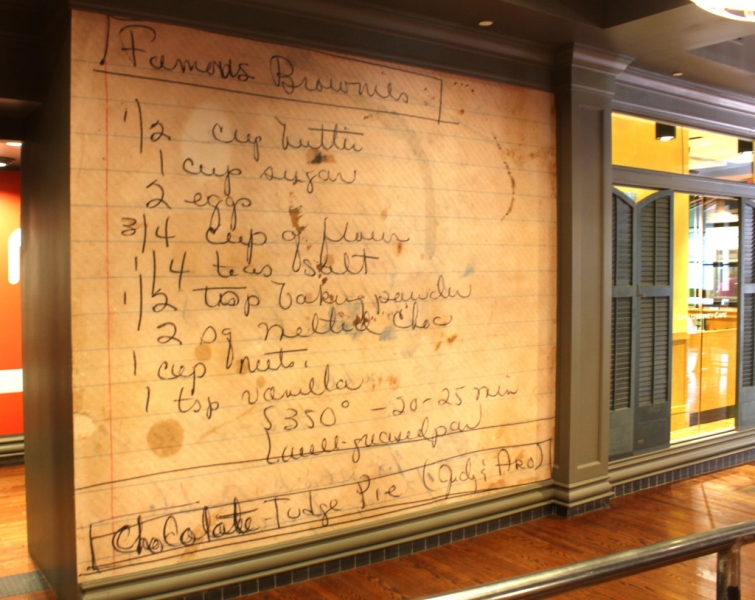 Famous Brownies
1/2 cup butter
1 cup sugar
2 eggs
3/4 cup of flour
1/4 teas salt
1/2 tsp baking powder
2 sq melted choc
1 cup nuts.
1 tsp vanilla
350° - 20-25 min
well-greased pan
Chocolate Fudge Pie (Judy & Aro)